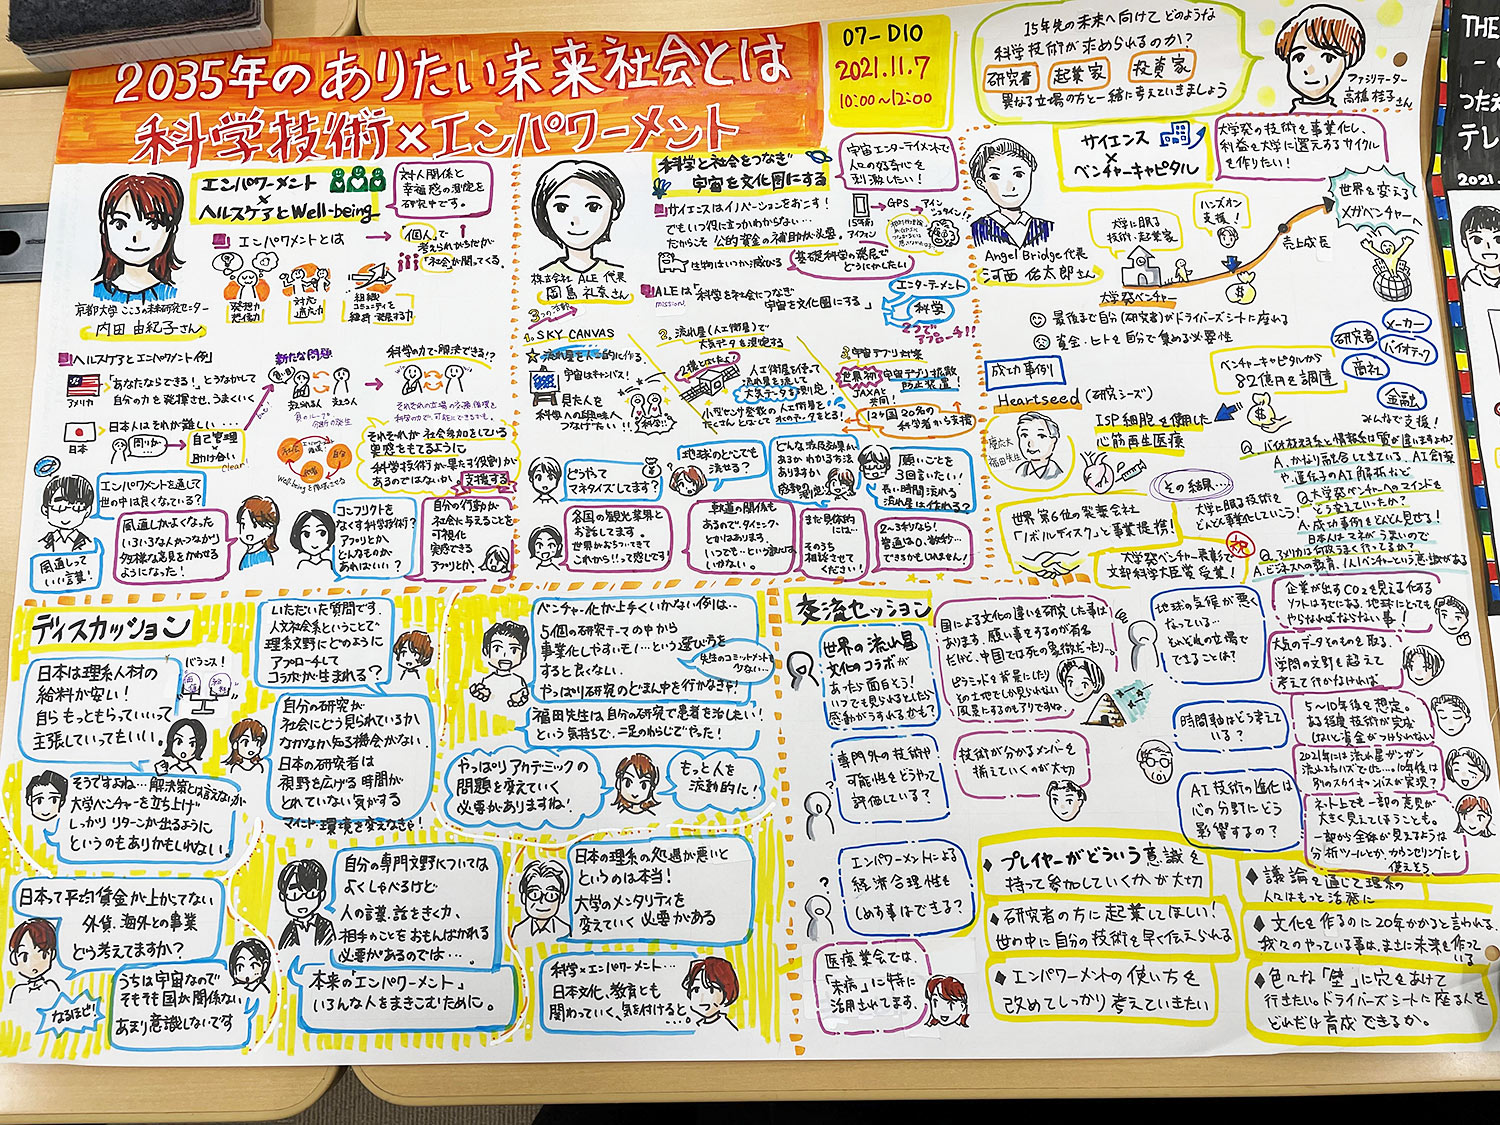 2035年のありたい未来社会とは
科学技術×エンパワーメント
07-D10
2021.11.7
10:00～12:00
15年先の未来へ向けてどのような
科学技術が求められるのか?
研究者 起業家 投資家
異なる立場の方と一緒に考えていきましょう
ファシリテーター
高橋桂子さん
エンパワーメント
×
ヘルスケアとWell-being
対人関係と
幸福感の測定を
研究中です。
京都大学 こころの未来研究センター
内田由紀子さん
エンパワメントとは
「個人」で
考えられがちだが
「社会」が関ってくる。
発想力
想像力
対応
適応力
組織
コミュニティを
維持・発展する力
ヘルスケアとエンパワメント(例)
アメリカ
「あなたならできる!」とうながして
自分の力を発揮させ、うまくいく
日本
日本人はそれが難しい・・・
自己管理
助け合い
新たな問題
支えられる人
支える人
科学の力で解決できる!?
それぞれが社会参加をしている
実感をもてるように
科学技術が果たす役割が
あるのではないか。
支援する
エンパワメントを通じて
世の中は良くなっている?
風通しがよくなった
いろいろな人がつながり
多様な意見をかわせる
ようになった!
風通しって
いい言葉!
コンフリクトを
なくす科学技術?
アプリとか
どんなものが
あればいい?
自分の行動が
社会に与えることを
可視化
実感できる
アプリとか、
科学と社会をつなぎ
宇宙を文化圏にする
宇宙エンターテイメントで
人々の好奇心を
刺激したい!
株式会社 ALE 代表
岡島礼奈さん
サイエンスはイノベーションをおこす!
でもいつ役に立つかわからない・・・
だからこそ 公的資金の補助が必要。
15年前
アイフォン
GPS
アインシュタイン!!
生物はいつか滅びる
基礎科学の発展で
どうにかしたい
ALEは「科学を社会につなぎ
宇宙を文化圏にする」
mission!
エンターテーメント
科学
2つでアプローチ!!
3つの活動
1. SKY CANVAS
流れ星を人工的に作る。
宇宙はキャンバス!
見た人を
科学への興味へ
つなげたい!!
科学!!
2. 流れ星(人工衛星)で
大気データを測定する
人工衛星を使って
流れ星を流して
大気データを測定。
小型センサ登載の人工衛星を
たくさんとばして
3. 宇宙デブリ対策
世界初
宇宙デブリ拡散
防止装置!
JAXAと
共同!
12ヶ国20名の
科学者から支援
どうやって
マネタイズしてます?
地球のどこでも
流せる?
どんな波及効果が
あるかわかる方法
ありますか
願いごとを
3回言いたい!
長い時間流れる
流れ星は作れる?
各国の観光業界と
お話してます。
世界がおちついてきて
これから!!って感じです!
軌道の関係も
あるので、タイミング・
とかはありますが
いつでも…という訳には
いかない。
まだ具体的
には…
そのうち
相談させて
ください!
2～3秒なら!
普通は0.数秒…
できるかもしれません!
サイエンス
×
ベンチャーキャピタル
大学発の技術を事業化し、
利益を大学に還元するサイクル
を作りたい!
Angel Bridge代表
河西佑太郎さん
大学に眠る
技術・起業家
ハンズオン
支援!
売上成長
世界を変える
メガベンチャーへ
大学発ベンチャー
最後まで自分(研究者)がドライバーズシートに座れる
資金・ヒトを自分で集める必要性
成功事例
Heartseed (研究シーズ)
慶応大
福田先生
心筋再生医療
ベンチャーキャピタルから
82億円を調達
研究者
メーカー
バイオテック
商社
金融
みんなで支援!
その結果…
世界第6位の発薬会社
「ノボルディスク」と事業提携!
大学に眠る技術を
どんどん事業化していこう!
祝
大学発ベンチャー表彰で
文部科学大臣賞受賞!
Q. バイオ技術系と情報系は質が違いますよね?
A. かなり融合してきている。AI創薬
や、遺伝子のAI解析など
Q. 大学発ベンチャーへのマインドを
どう変えていったか?
A. 成功事例をどんどん見せる!
日本人はマネがうまいので
Q. アメリカは何故うまく行ってるか?
ディスカッション
日本は理系人材の
給料が安い!
自らもっともらっていいって
主張していってもいい。
バランス!
そうですよね…解決策とは言えないが
大学ベンチャーを立ち上げ
しっかりリターンが出るように
というのもありかもしれない。
日本って平均賃金が上がってない
外貨、海外との事業
どう考えてますか?
なるほど!
うちは宇宙なので
そもそも国が関係ない
あまり意識しないです
いただいた質問です。
人文社会系ということで
理系文野にどのように
アプローチして
コラボが生まれる?
自分の研究が
社会にどう見られているか
なかなか知る機会がない
日本の研究者は
視野を広げる時間が
とれていない気がする
マインド・環境を変えなきゃ!
自分の専門文野については
よくしゃべるけど
人の話をきく力、
相手のことをおもんばかれる
必要があるのでは…
本来の「エンパワーメント」
いろんな人をまきこむために。
ベンチャー化が上手くいかない例は…
5個の研究テーマの中から
事業化しやすいも!…という選び方を
すると良くない
やっぱり研究のどまん中を行かなきゃ!
先生のコミットメント
少ない…
福田先生は自分の研究で患者を治したい!
という気持ちで、二足のわらじでやった!
やっぱりアカデミックの
問題を変えていく
必要がありますね!
もっと人を
流動的に!
日本の理系の処遇が悪いと
というのは本当!
大学のメンタリティを
変えていく必要がある
科学×エンパワーメント…
日本文化、教育とも
関わっていく、気を付けると
交流セッション
世界の流れ星
文化のコラボが
あったら面白そう!
いつでも見られるとしたら
感動がうすれるかも?
国による文化の違いを研究した事は
あります。願い事をするのが有名
だけど、中国では死の象徴だったり…。
ピラミッドを背景にしたり
その土地でしか見られない
風景にするのもアリですね。
専門外の技術や
可能性をどうやって
評価している?
技術が分かるメンバを
揃えていくのが大切
エンパワーメントによる
経済合理性も
しめす事はできる?
医療業会では、
「未病」に特に
活用されてます。
地球の気候が悪く
なっている…
それぞれの立場で
できることは?
企業が出すCO2を見える化する
ソフトはすでにある。地球にとっても
やらなければならない事!
大気のデータそのものを取る。
学問の文野を超えて
考えて行かなければ
時間軸はどう考えて
いる?
5～10年後を想定。
ある程度技術が完成
しないと資金がつけられない
AI技術の進化は
心の分野にどう
影響するの?
ネット上でも一部の意見が
大きく見えてしまうことも。
一部から全体が見えるような
分析ツールとか、カウンセリングにも
使えそう
◆プレイヤーがどういう意識を
持って参加していくかが大切
◆研究者の方に起業してほしい!
世の中に自分の技術を早く伝えられる
◆エンパワーメントの使い方を
改めてしっかり考えていきたい
◆議論を通じて理系の
人にはもっと活発に
◆文化を作るのに20年かかると言われる。
我々のやっている事は、まさに未来を作って
いる
◆色んな「壁」に穴をあけて
行きたい。ドライバーズシートに座る人を
どれだけ育成できるか。
THE
つたえ
テレ
2021